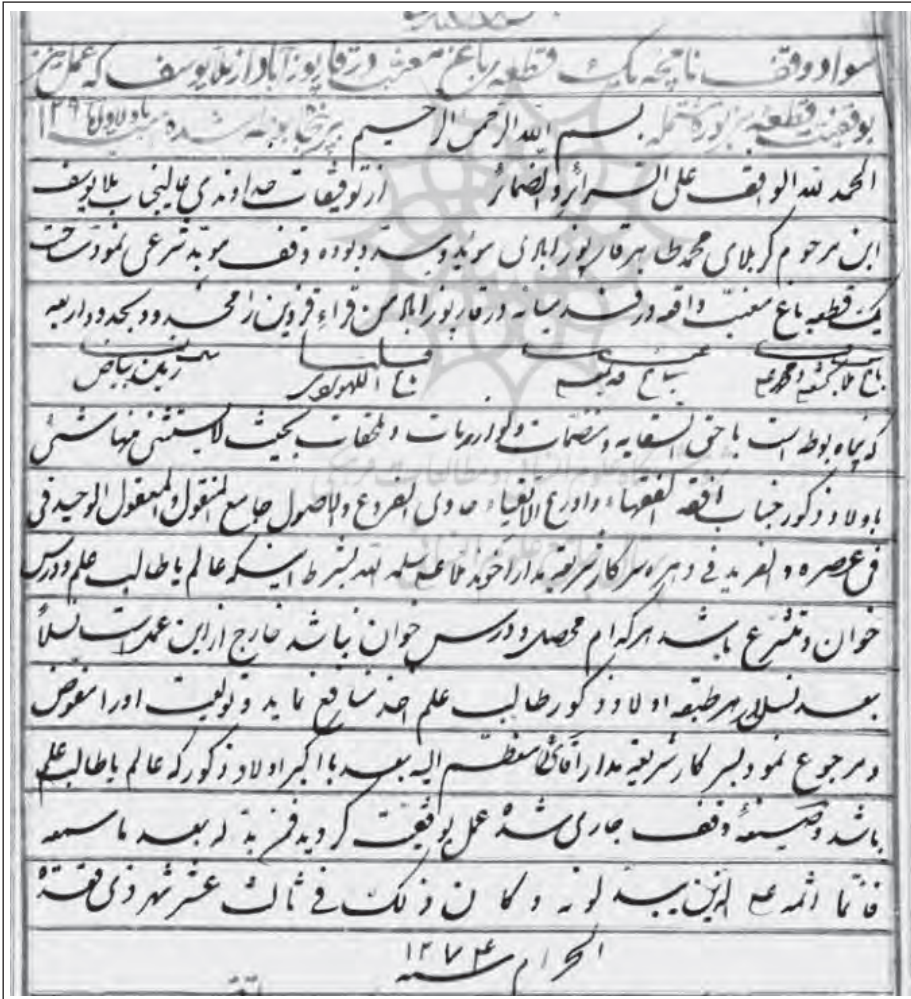 سواد وقف نامچه یک قطعه باغ معنب در قارپوزآباد از ملا یوسف که عمل
بوقفیت قطعه مزبوره بسم الله الرحمن الرحیم شده
الحمد لله الواقف علی السرائر والضمائر از توفیقات خداوندی عالیجناب ملا یوسف
ابن مرحوم کربلای محمد طاهر قارپوزابادی موید و مسدد بوده وقف موبد شرعی نمود
یک قطعه باغ معنب واقعه در میانه در قارپوزاباد من قراء قزوین را محدوده بحدود اربعه
باغ باغ باغ اللهویردی زمین بیاض
که بوطه است با حق السقایه و منضمات و لوازمات و ملحقات بحیث لایستثنی منها شیئ
باولاد ذکور جناب افقه الفقهاء و اورع الاتقیاء حاوی الفروع والاصول جامع المنقول والمعقول الوحید فی
فی عصره و الفرید فی دهره سرکار شریعتمدار آخوند ملا سلمه الله بشرط اینکه عالم یا طالب علم و درس
خوان و متشرع باشد هر کدام محصل و درس خوان نباشد خارج از این عمل است نسلاً
بعد نسل هر طبقه اولاد ذکور طالب علم اخذ منافع نماید و تولیت او را مفوض
و مرجوع نمود بسرکار شریعتمدار آقای معظم الیه بعد با اکبر اولاد ذکور که عالم یا طالب علم
باشد و صیغهٔ وقف جاری شده عمل بوقفیت گردید فمن بدله بعد ما سمعه
فانما اثمه علی الذین یبدلونه و کان ذلک فی ثالث عشر شهر ذی قعدة
الحرام سنه ۱۲۷۴